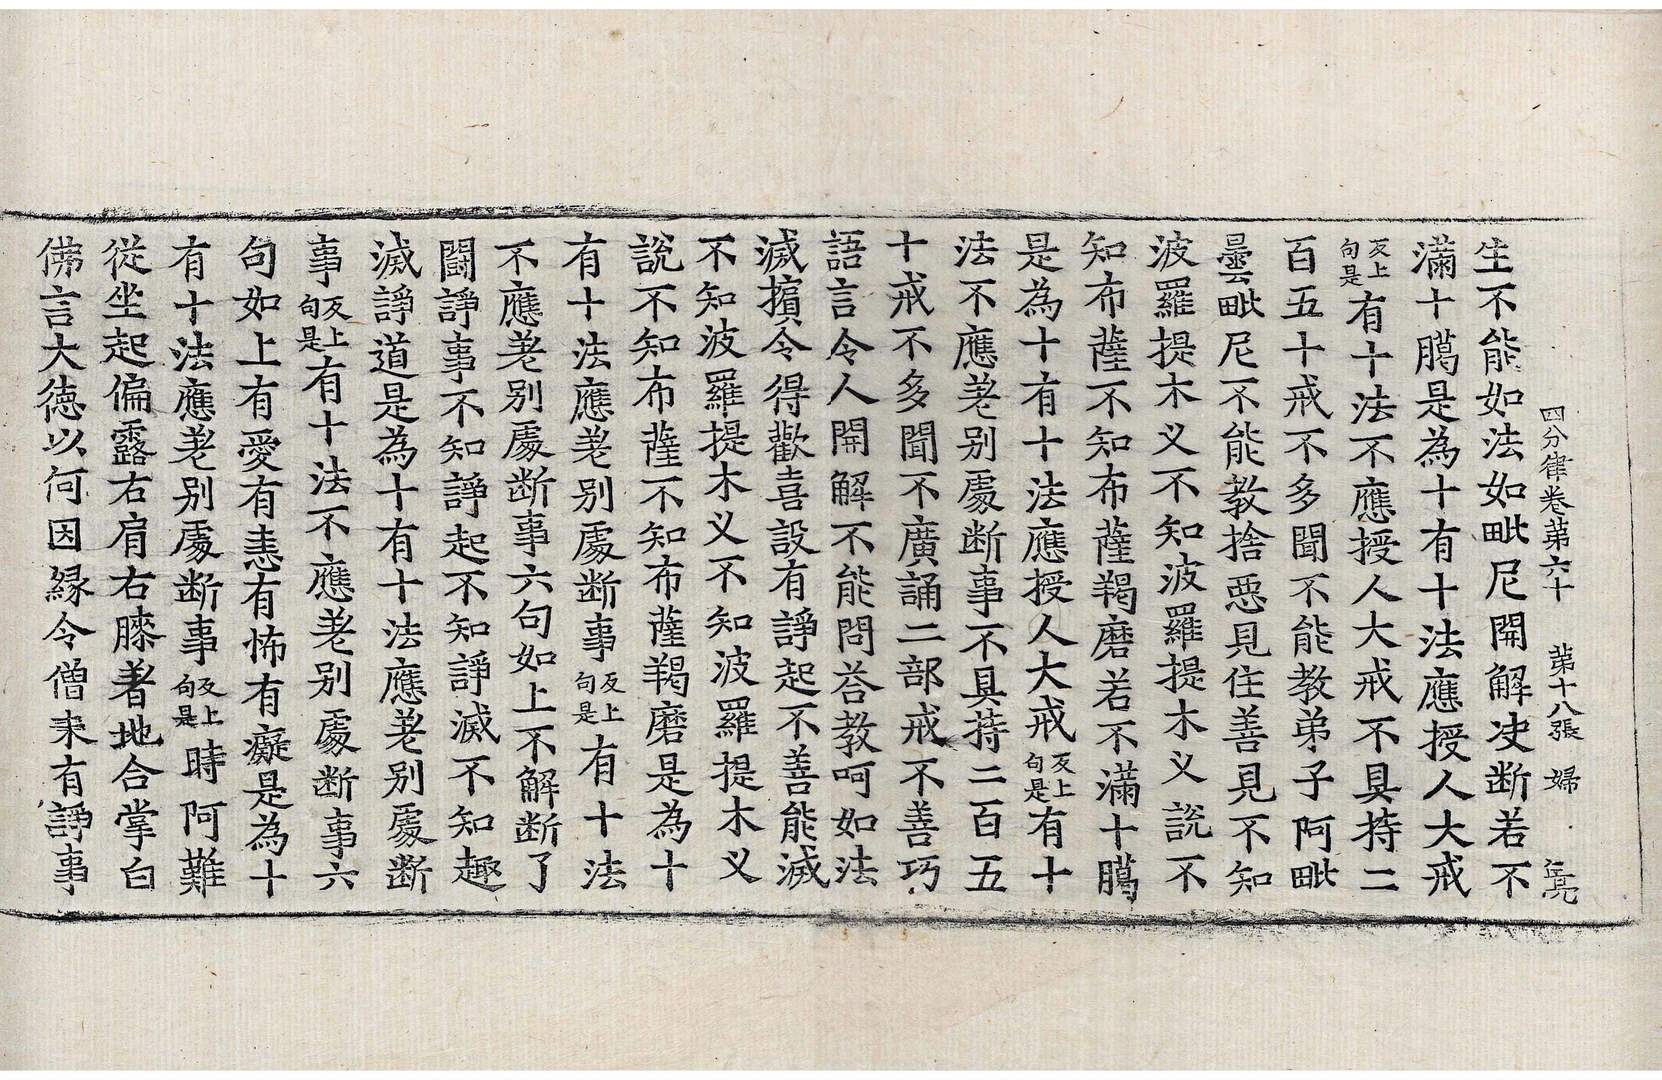 四分律卷第六十 第十八張 婦
生不能如法如毗尼開解决断若不
滿十臈是為十有十法應授人大戒
反上句是有十法不應授人大戒不具持二
百五十戒不多聞不能教弟子阿毗
曇毗尼不能教捨惡見住善見不知
波羅提木义不知波羅提木义說不
知布薩不知布薩羯磨若不滿十臈
是為十有十法應授人大戒反上句是有十
法不應差别處断事不具持二百五
十戒不多聞不廣誦二部戒不善巧
語言令人開解不能問荅教呵如法
滅擯令得歡喜設有諍起不善能滅
不知波羅提木义不知波羅提木义
說不知布薩不知布薩羯磨是為十
有十法應差别處断事反上句是有十法
不應差别處断事六句如上不解断了
鬪諍事不知諍起不知諍滅不知趣
滅諍道是為十有十法應差别處断
事反上句是有十法不應差别處断事六
句如上有愛有恚有怖有癡是為十
有十法應差别處断事反上句是時阿難
從坐起偏露右肩右膝著地合掌白
佛言大德以何因緣令僧未有諍事